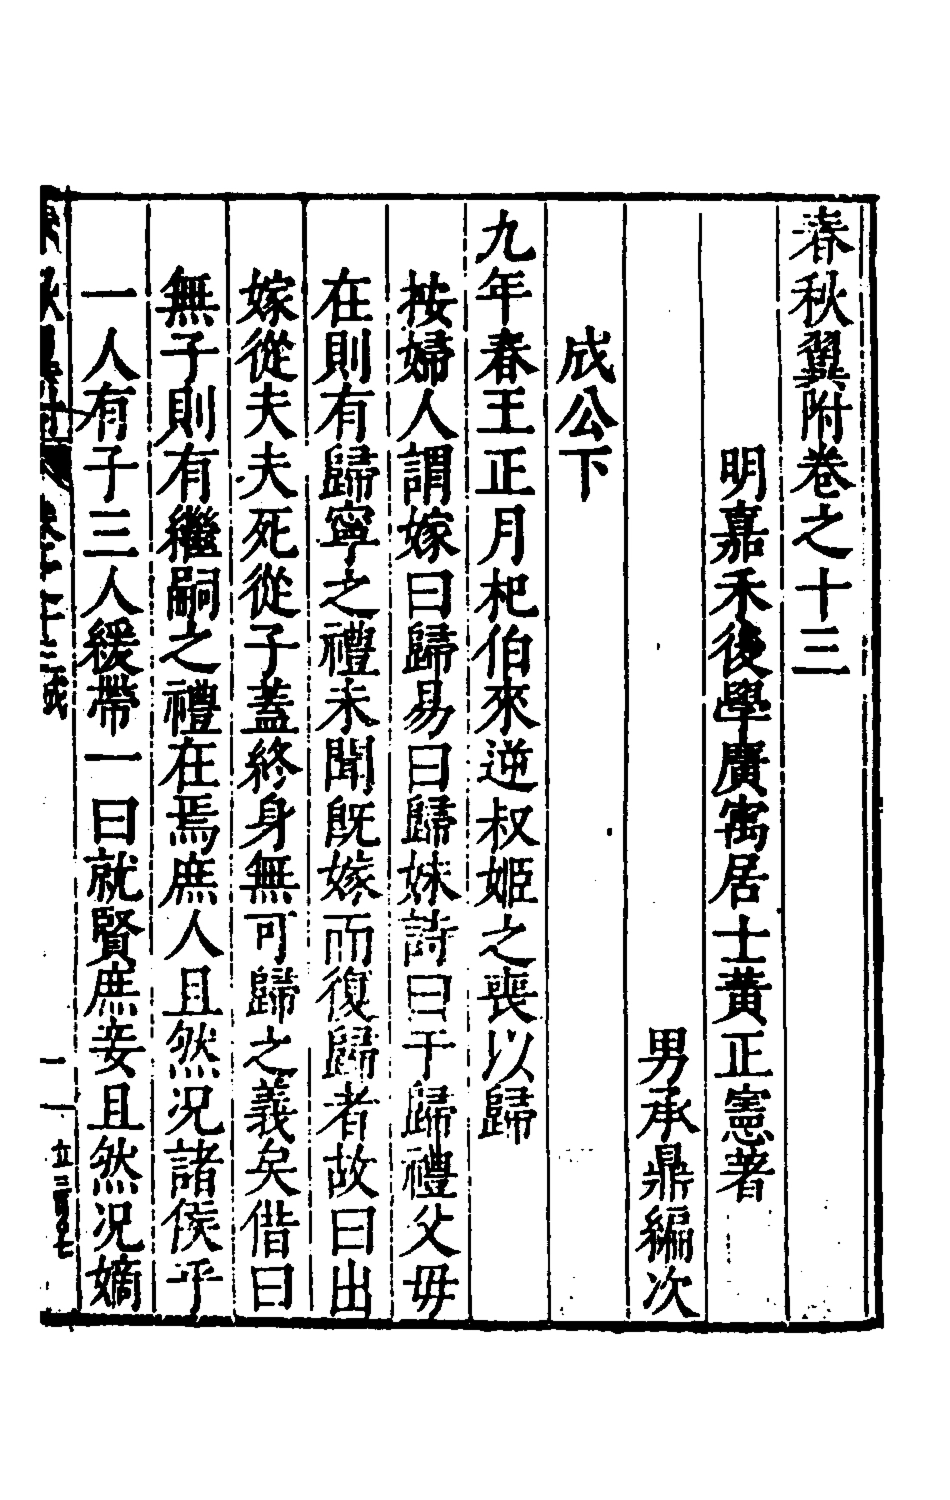 春秋翼附卷之十三
明嘉禾後學廣寓居士黃正憲著
男承鼎編次
成公下
九年春王正月杞伯來逆叔姬之喪以歸
按婦人謂嫁曰歸易曰歸妹詩曰于歸禮父毋
在則有歸寧之禮未聞旣嫁而復歸者故曰出
嫁從夫夫死從子蓋終身無可歸之義矣偕曰
無子則有繼嗣之禮在焉庶人且然况諸侯乎
一人有子三人緩帶一曰就賢庶妾且然况嫡